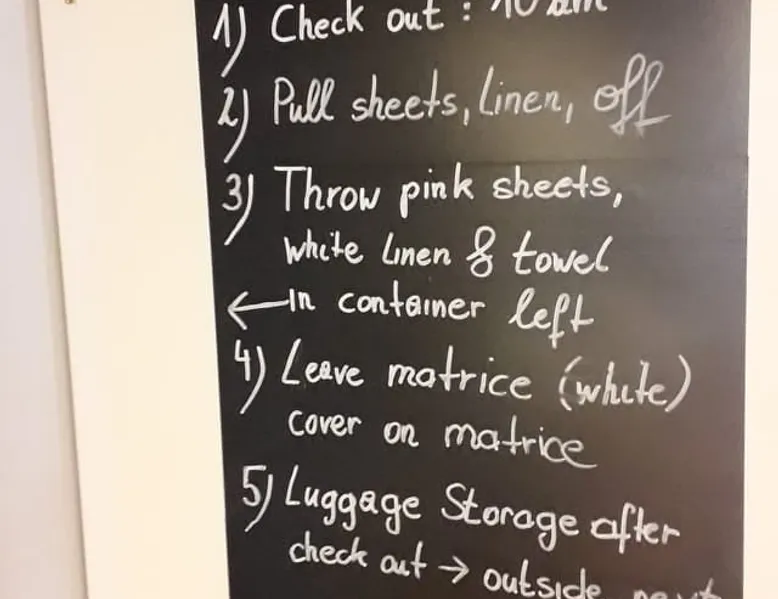 1) Check out : 10 am
2) Pull sheets, Linen, off
3) Throw pink sheets,
white linen & towel
← in container left
4) Leave matrice (white)
cover on matrice
5) Luggage Storage after
check out → outside next